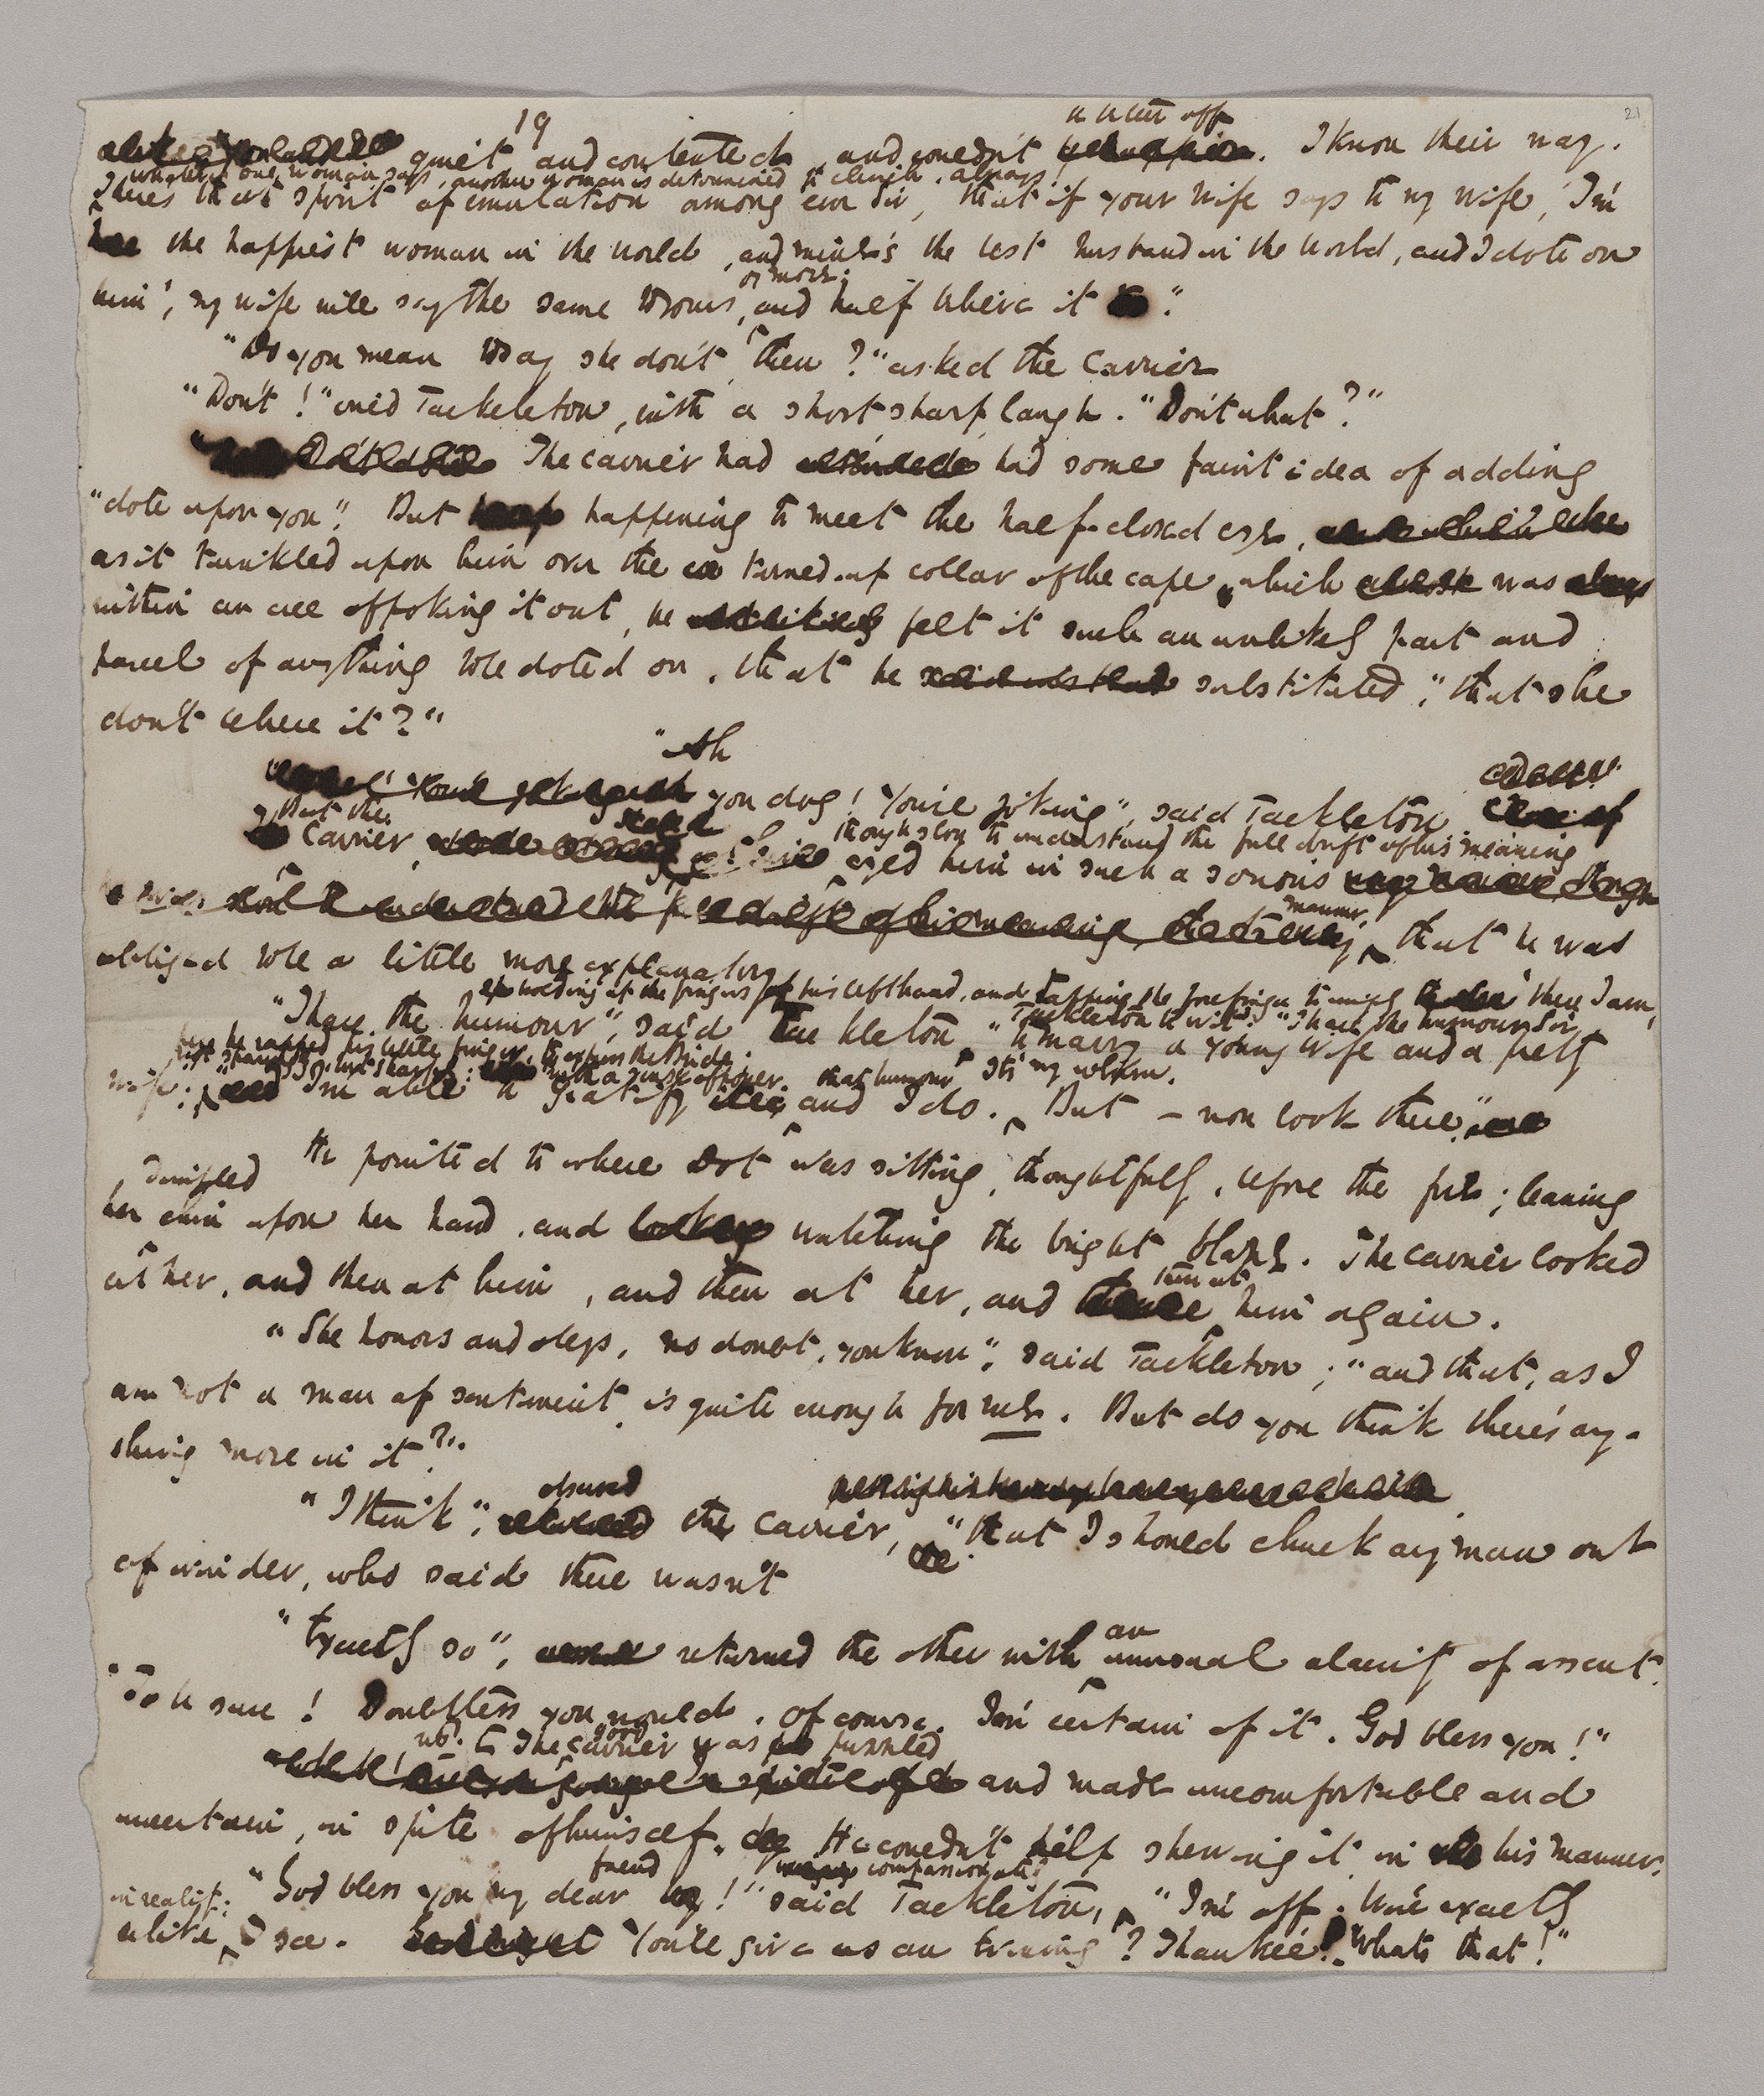 19
21
quiet and contented, and couldn't be better off. I know their way.
Whatever one woman says, another woman is determined to clinch, always.
There's that spirit of emulation among 'em Sir, that if your wife says to my wife, 'I'm
the happiest woman in the world, and mine's the best husband in the world, and I dote on
him', my wife will say the same to yours, or more; and half believe it".
"Do you mean to say she don't, then?" asked the Carrier
"Don't!" cried Tackleton, with a short, sharp laugh. "Don't what?"
The Carrier had had some faint idea of adding
"dote upon you". But happening to meet the half-closed eye,
as it twinkled upon him over the turned-up collar of the cape, which was
within an ace of poking it out, he felt it such an unlikely part and
parcel of anything to be doted on, that he substituted, "that she
don't believe it?"
"Ah
you dog! You're joking", said Tackleton
But the Carrier, though slow to understand the full drift of his meaning
eyed him in such a serious manner, that he was
obliged to be a little more explanatory
"I have the humour", said Tackleton, holding up the fingers of his left hand, and tapping the forefinger to imply 'there I am,
Tackleton to wit': "I have the humour Sir,
to marry a young wife and a pretty
wife": here he rapped his little finger, to express the Bride;
not sparingly, but sharply; with a sense of power. "I'm able to gratify that humour and I do. It's my whim. But – now look there".
He pointed to where Dot was sitting, thoughtfully, before the fire; leaning
her dimpled chin upon her hand, and watching the bright blaze. The Carrier looked
at her, and then at him, and then at her, and then at him again.
"She honors and obeys, no doubt, you know", said Tackleton; "and that, as I
am not a man of sentiment, is quite enough for me. But do you think there's any-
thing more in it?".
"I think", observed the Carrier, "that I should chuck any man out
of winder, who said there wasn't
"Exactly so", returned the other with an unusual alacrity of assent.
"To be sure! Doubtless you would. Of course. I'm certain of it. God bless you!"
The good Carrier was puzzled and made uncomfortable and
uncertain, in spite of himself. He couldn't help shewing it in his manner.
"God bless you my dear friend!" said Tackleton, compassionately. "I'm off. We're exactly
alike in reality, I see. You'll give us an evening? Thank'ee! What's that!"